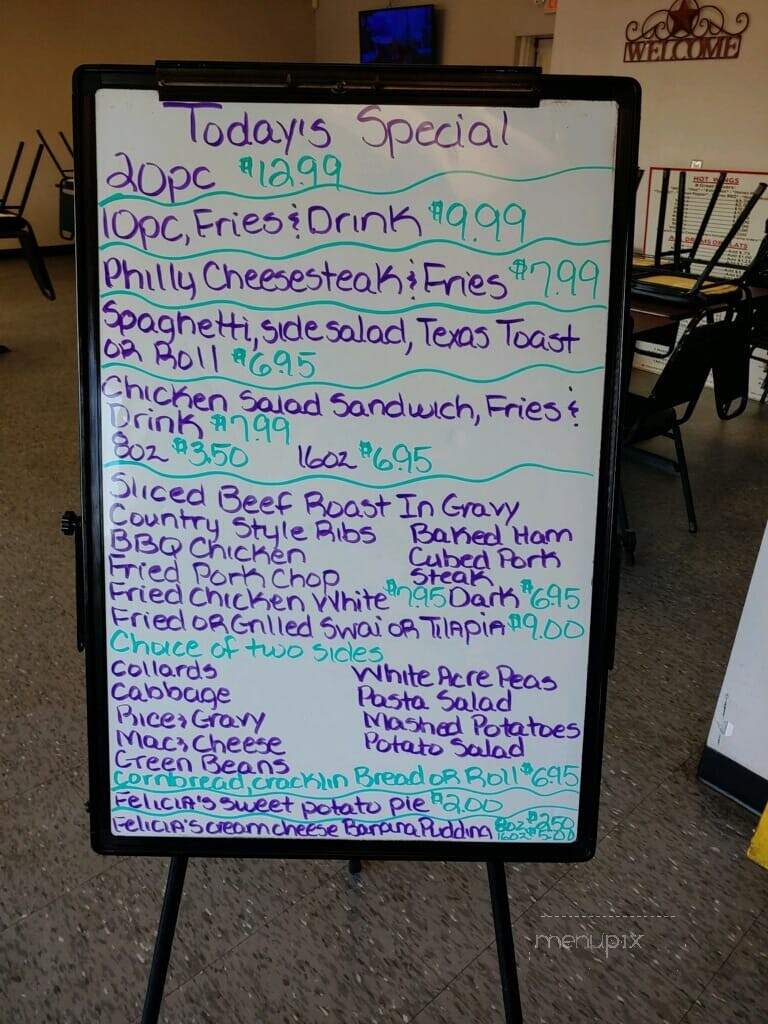 WELCOME
Today's Special
20pc $12.99
10pc, Fries & Drink $9.99
Philly Cheesesteak & Fries $7.99
Spaghetti, side salad, Texas Toast
OR Roll $6.95
Chicken Salad Sandwich, Fries &
Drink $7.99
8oz $3.50 16oz $6.95
Sliced Beef Roast In Gravy
Country Style Ribs Baked Ham
BBQ Chicken Cubed Pork
Fried Pork Chop Steak
Fried Chicken White $7.95 Dark $6.95
Fried OR Grilled Swai OR Tilapia $9.00
Choice of two sides
Collards White Acre Peas
Cabbage Pasta Salad
Rice & Gravy Mashed Potatoes
Mac & Cheese Potato Salad
Green Beans
Cornbread, cracklin Bread OR Roll $6.95
Felicia's sweet potato pie $2.00
Felicia's creamcheese Banana Pudding 8oz $2.50
16oz $5.00
HOT WINGS
menupix